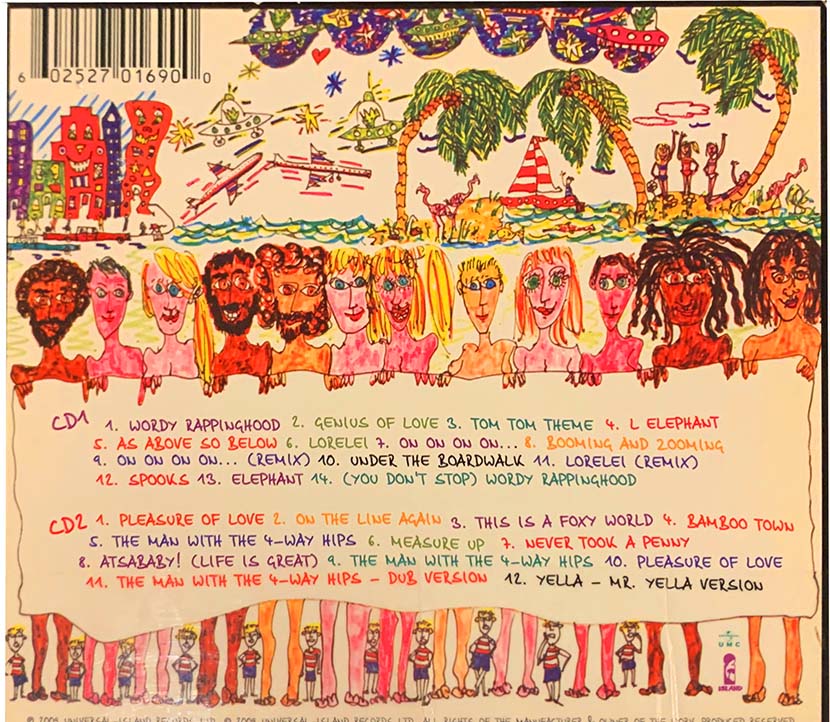 6 02527 01690 0
CD1 1. WORDY RAPPINGHOOD 2. GENIUS OF LOVE 3. TOM TOM THEME 4. L ELEPHANT
5. AS ABOVE SO BELOW 6. LORELEI 7. ON ON ON ON... 8. BOOMING AND ZOOMING
9. ON ON ON ON... (REMIX) 10. UNDER THE BOARDWALK 11. LORELEI (REMIX)
12. SPOOKS 13. ELEPHANT 14. (YOU DON'T STOP) WORDY RAPPINGHOOD
CD2 1. PLEASURE OF LOVE 2. ON THE LINE AGAIN 3. THIS IS A FOXY WORLD 4. BAMBOO TOWN
5. THE MAN WITH THE 4-WAY HIPS 6. MEASURE UP 7. NEVER TOOK A PENNY
8. ATSABABY! (LIFE IS GREAT) 9. THE MAN WITH THE 4-WAY HIPS 10. PLEASURE OF LOVE
11. THE MAN WITH THE 4-WAY HIPS - DUB VERSION 12. YELLA - MR. YELLA VERSION
UMC
ISLAND
© 2009 UNIVERSAL-ISLAND RECORDS LTD. © 2009 UNIVERSAL-ISLAND RECORDS LTD. ALL RIGHTS OF THE MANUFACTURER & OWNER OF THE WORK PRODUCED RESERVED